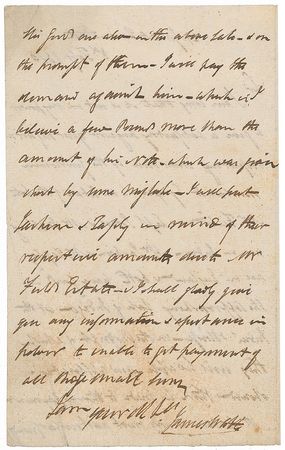 his Good one also in the above Sale - & on
the prompt of them - I will pay the
demand against him - which is I
believe a few Pounds more than the
amount of his Note - which was given
short by some mistake - I will put
& Taply in mind of their
respective amounts due to Mr
Estate - & I shall gladly give
you any information & assistance in
power to enable to get payment of
all those small Sums
I am yours &c &c
James Watt